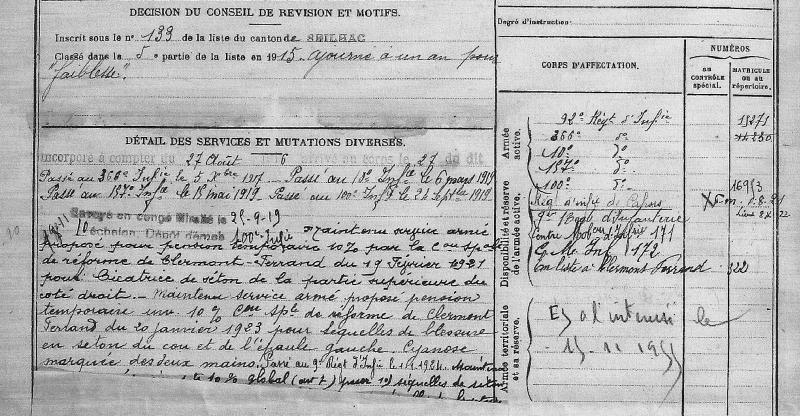 DECISION DU CONSEIL DE REVISION ET MOTIFS.
Inscrit sous le n° 133 de la liste du canton de SEILHAC
Classé dans la 5e partie de la liste en 1915. ajourné à un an pour
"faiblesse".
DÉTAIL DES SERVICES ET MUTATIONS DIVERSES.
Incorporé à compter du 27 Août 1916 arrivé au corps le 27 du dit
Passé au 366e Infie le 5 Xbre 1917 - Passé au 10e Infie le 6 mars 1919
Passé au 137e Infie le 18 mai 1919 - Passé au 100e Infie le 24 Septbre 1919
Envoyé en congé illimité le 25-9-19
échelon. Dépôt démob. 100e Infie Maintenu service armé
proposé pour pension temporaire 10% par la Cou Spéc
de réforme de Clermont-Ferrand du 19 Février 1921
pour: Cicatrice de séton de la partie supérieure du
coté droit. - Maintenu service armé proposé pension
temporaire inv. 10% Cou Sple de réforme de Clermont
Ferrand du 20 janvier 1923 pour séquelles de blessure
en séton du cou et de l'épaule gauche. Cyanose
marquée des deux mains. Passé au 9e Régt d'Infie le 1.1.1924. Maintenu
10% global séquelles de séton
Degré d'instruction:
CORPS D'AFFECTATION.
NUMÉROS
au CONTRÔLE spécial.
MATRICULE ou au répertoire.
Armée active.
92e Régt d'Infie 15271
366e do
10e do
137e do
100e do 16953
Disponibilité et réserve de l'armée active.
Régt d'infie de Cahors
9e Régt d'Infanterie
Centre Mou d'Infie 171
C. M. Inf. 172
En liste à Clermont Ferrand 322
Armée territoriale et sa réserve.